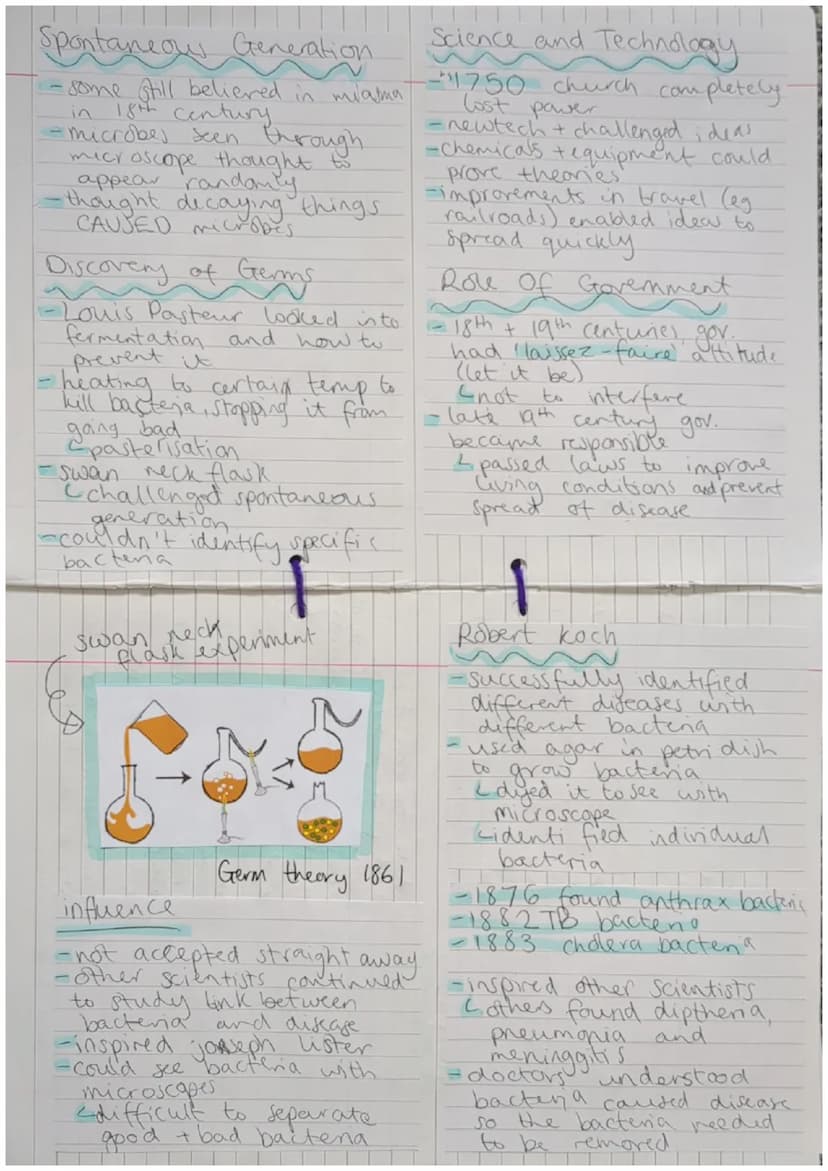 Spontaneous Generation
- some still believed in miasma
in 18th century
- microbes seen through
microscope thought to
appear randomly
- thought decaying things
CAUSED microbes
Discovery of Germs
- Louis Pasteur looked into
fermentation and how to
prevent it
- heating to certain temp to
kill bacteria, stopping it from
going bad
↳ pasterisation
- swan neck flask
↳ challenged spontaneous
generation
- couldn't identify specific
bacteria
Science and Technology
- 1750 church completely
lost power
- new tech + challenged ideas
- chemicals + equipment could
prove theories
- improvements in travel (eg
railroads) enabled ideas to
spread quickly
Role Of Government
- 18th + 19th centuries, gov.
had 'laissez-faire' attitude
(let it be)
↳ not to interfere
- late 19th century gov.
became responsible
↳ passed laws to improve
living conditions and prevent
spread of disease
swan neck
flask experiment
Germ theory 1861
influence
- not accepted straight away
- other scientists continued
to study link between
bacteria and disease
- inspired joseph lister
- could see bacteria with
microscopes
↳ difficult to separate
good + bad bacteria
Robert Koch
- successfully identified
different diseases with
different bacteria
- used agar in petri dish
to grow bacteria
↳ dyed it to see with
microscope
↳ identified individual
bacteria
- 1876 found anthrax bacteria
- 1882 TB bacteria
- 1883 cholera bacteria
- inspired other scientists
↳ others found diptheria,
pneumonia and
meninggitis
- doctors understood
bacteria caused disease
so the bacteria needed
to be removed